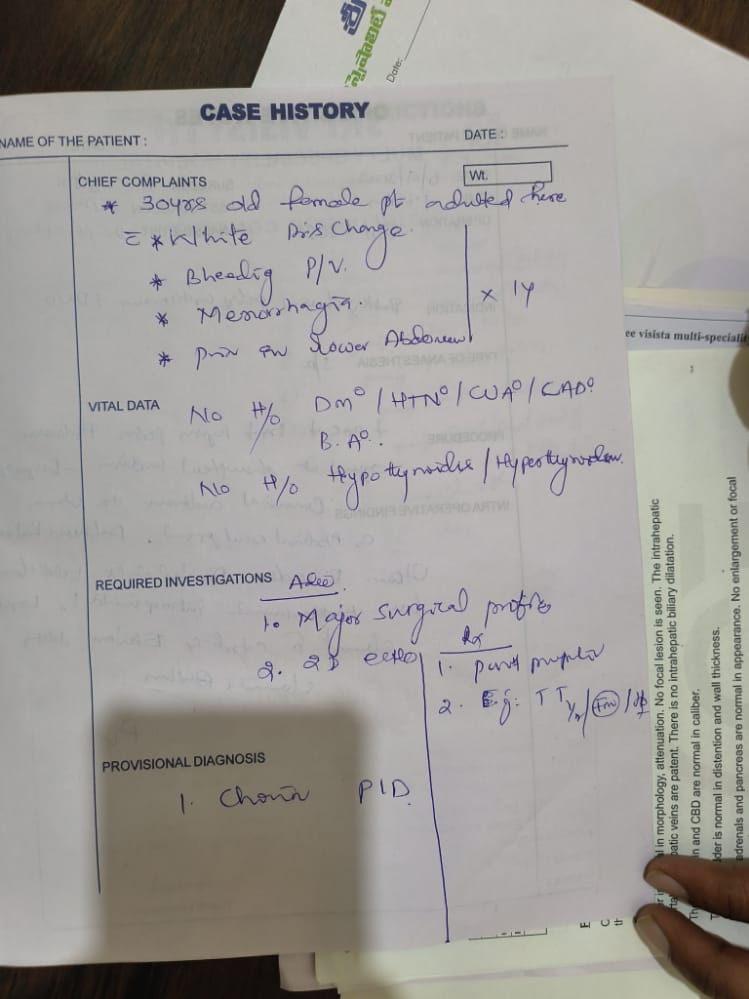 Date:
CASE HISTORY
NAME OF THE PATIENT :
DATE :
CHIEF COMPLAINTS
Wt.
* 30yrs old female pt admitted here
c̄ * White Discharge.
* Bleeding P/V.
* Menorrhagia.
* pain in lower Abdomen
x 1Y
VITAL DATA
No H/o Dm° / HTN° / CVA° / CAD°
B.A°.
No H/o Hypothyroidis / Hyperthyroidism.
REQUIRED INVESTIGATIONS
1. Major surgical profile
2. 2D echo
Rx
1. part
2. Inj: TT
PROVISIONAL DIAGNOSIS
1. Chronic PID.
ee visista multi-speciali
l in morphology, attenuation. No focal lesion is seen. The intrahepatic
patic veins are patent. There is no intrahepatic biliary dilatation.
n and CBD are normal in caliber.
der is normal in distention and wall thickness.
edrenals and pancreas are normal in appearance. No enlargement or focal